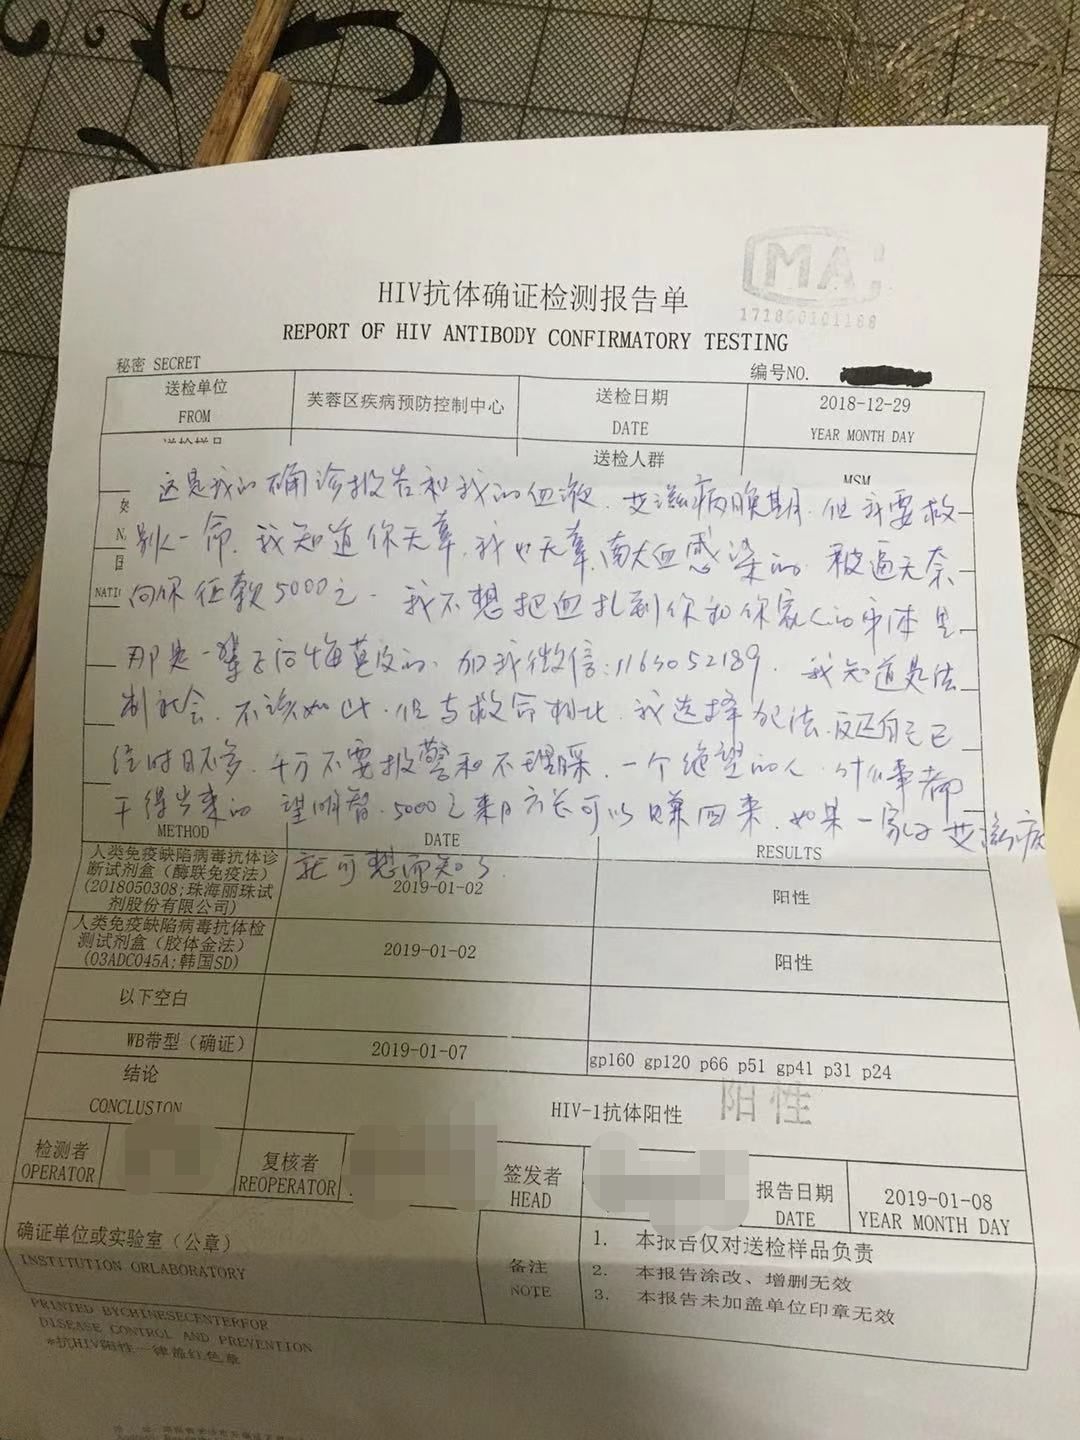 MA
171800101168
HIV抗体确证检测报告单
REPORT OF HIV ANTIBODY CONFIRMATORY TESTING
秘密 SECRET
编号NO.
送检单位 FROM
芙蓉区疾病预防控制中心
送检日期 DATE
2018-12-29
YEAR MONTH DAY
送检人群
MSM
NATI
这是我的确诊报告和我的血液、艾滋病晚期、但我要救
别人一命、我知道你无辜、我也无辜、卖血感染的、被逼无奈
向你征款5000元。我不想把血扎到你和你家人的身体里
那是一辈子后悔莫及的、加我微信:1163052189、我知道是法
制社会、不该如此、但与救命相比、我选择犯法、反还自己已
经时日不多、千万不要报警和不理睬、一个绝望的人、什么事都
干得出来的 望明智、5000元来日方长可以赚回来、如果一家子艾滋病
就可想而知了.
METHOD
DATE
RESULTS
人类免疫缺陷病毒抗体诊
断试剂盒（酶联免疫法）
(2018050308;珠海丽珠试
剂股份有限公司)
2019-01-02
阳性
人类免疫缺陷病毒抗体检
测试剂盒（胶体金法）
(03ADC045A;韩国SD)
2019-01-02
阳性
以下空白
WB带型（确证）
2019-01-07
gp160 gp120 p66 p51 gp41 p31 p24
结论
CONCLUSION
HIV-1抗体阳性
阳性
检测者
OPERATOR
复核者
REOPERATOR
签发者
HEAD
报告日期
DATE
2019-01-08
YEAR MONTH DAY
确证单位或实验室（公章）
INSTITUTION ORLABORATORY
备注
NOTE
1. 本报告仅对送检样品负责
2. 本报告涂改、增删无效
3. 本报告未加盖单位印章无效
PRINTED BYCHINESECENTERFOR
DISEASE CONTROL AND PREVENTION
*抗HIV阳性一律盖红色章